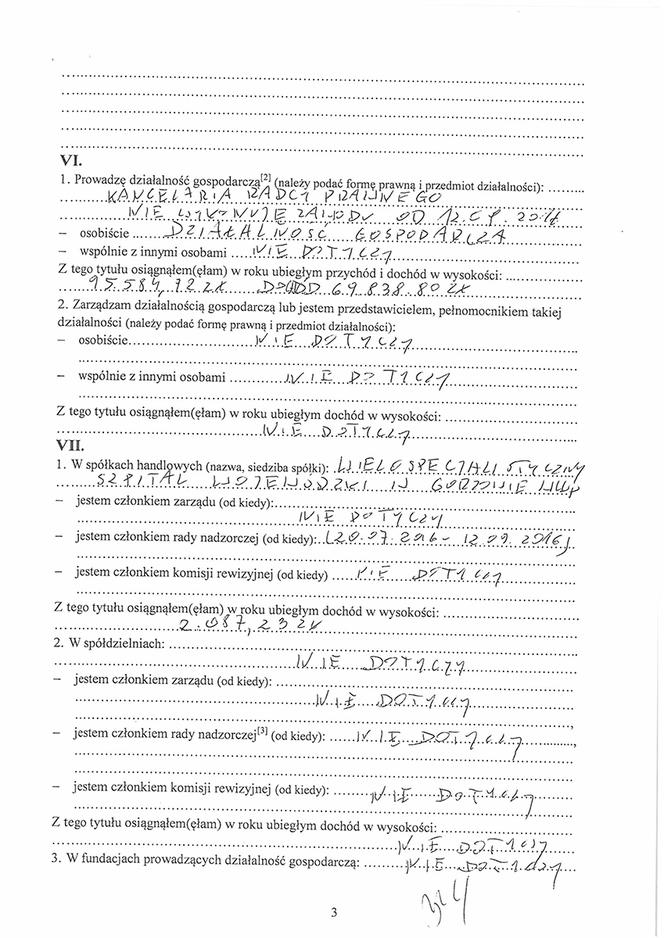 VI.
1. Prowadzę działalność gospodarczą[2] (należy podać formę prawną i przedmiot działalności): .........
KANCELARIA RADCY PRAWNEGO
NIE WYKONUJĘ ZAWODU OD 12.
– osobiście DZIAŁALNOŚĆ GOSPODARCZA
– wspólnie z innymi osobami ....NIE DOTYCZY
Z tego tytułu osiągnąłem(ęłam) w roku ubiegłym przychód i dochód w wysokości: ....................
95.584,92 ZŁ DOCHÓD 69.838.80 ZŁ
2. Zarządzam działalnością gospodarczą lub jestem przedstawicielem, pełnomocnikiem takiej
działalności (należy podać formę prawną i przedmiot działalności):
– osobiście............NIE DOTYCZY
– wspólnie z innymi osobami ............NIE DOTYCZY
Z tego tytułu osiągnąłem(ęłam) w roku ubiegłym dochód w wysokości: ....................
NIE DOTYCZY
VII.
1. W spółkach handlowych (nazwa, siedziba spółki): WIELOSPECJALISTYCZNY
SZPITAL WOJEWÓDZKI W GORZOWIE WLKP
– jestem członkiem zarządu (od kiedy):....................
NIE DOTYCZY
– jestem członkiem rady nadzorczej (od kiedy): (20.07.2016 - 12.09.2016)
– jestem członkiem komisji rewizyjnej (od kiedy) ......NIE DOTYCZY
Z tego tytułu osiągnąłem(ęłam) w roku ubiegłym dochód w wysokości: ....................
2.087,23 ZŁ
2. W spółdzielniach: ....................
NIE DOTYCZY
– jestem członkiem zarządu (od kiedy): ....................
NIE DOTYCZY
– jestem członkiem rady nadzorczej[3] (od kiedy): ......NIE DOTYCZY............,
– jestem członkiem komisji rewizyjnej (od kiedy): ......NIE DOTYCZY
Z tego tytułu osiągnąłem(ęłam) w roku ubiegłym dochód w wysokości: ....................
NIE DOTYCZY
3. W fundacjach prowadzących działalność gospodarczą: .........NIE DOTYCZY....
3